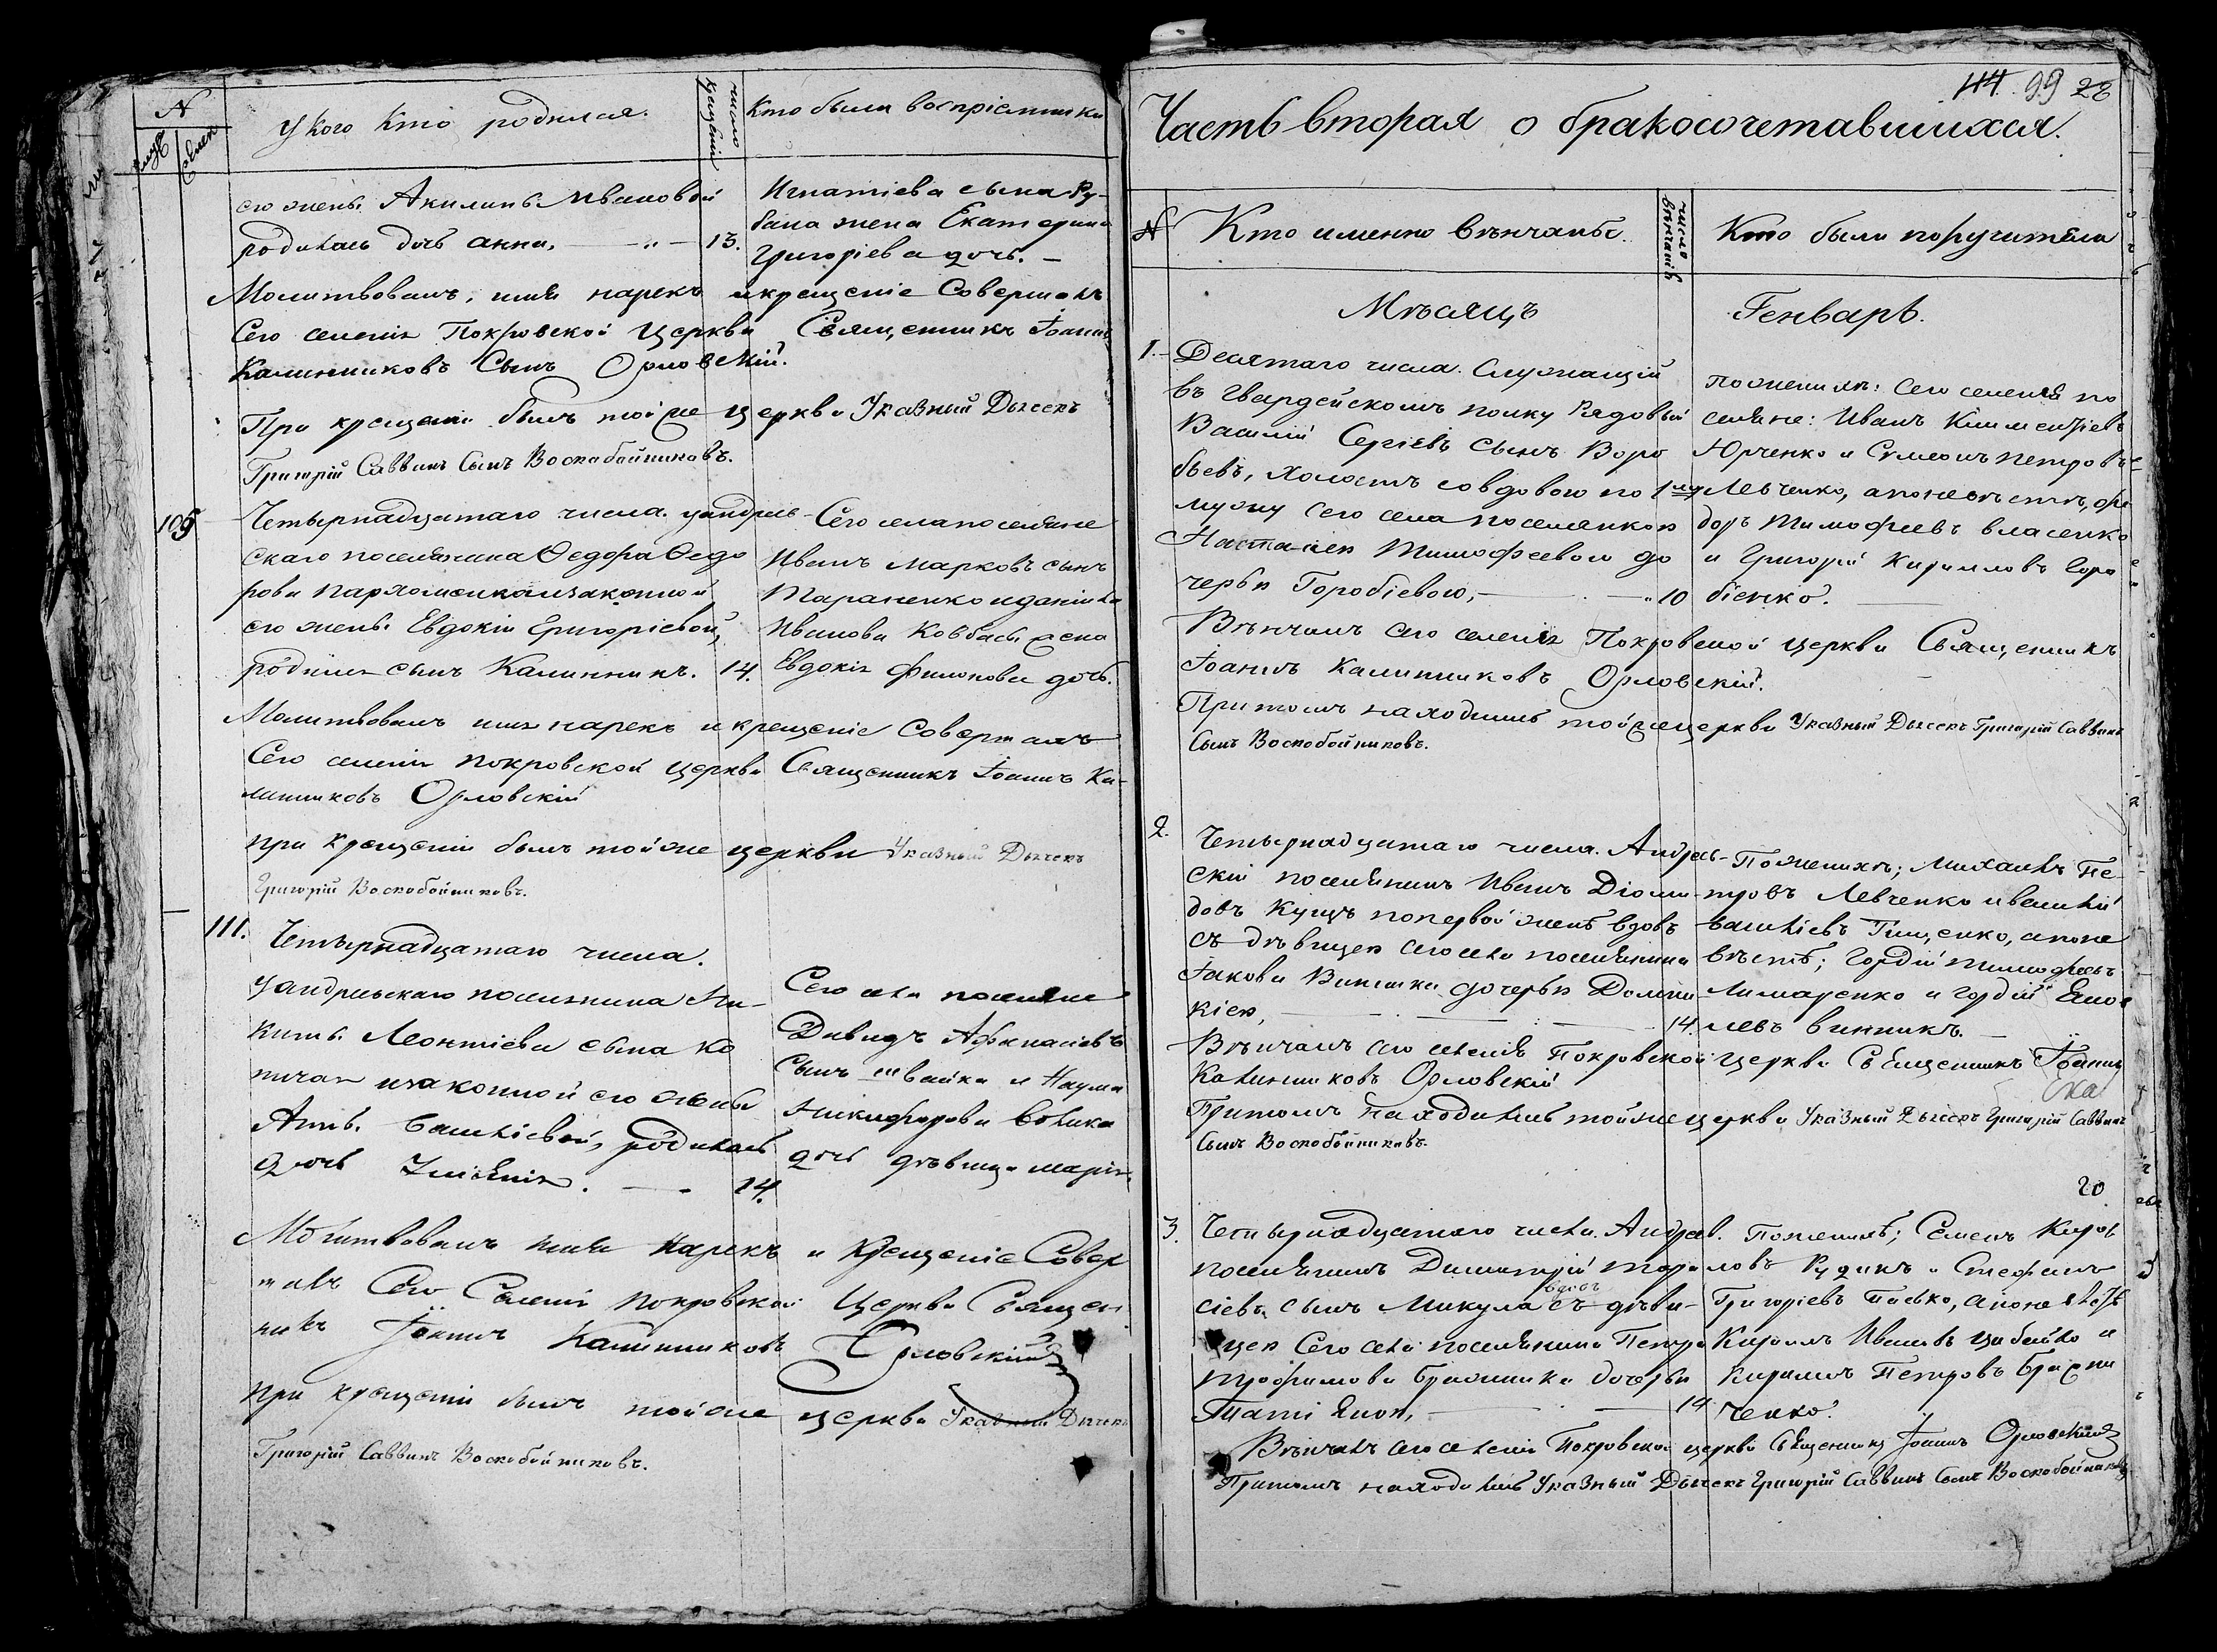 N
мужс
женск
У кого кто родился.
число крещенія
Кто были воспріемники
его жены Акилины Ивановой
родилась дочь Анна, — „ — 13.
Игнатіева сына Ру-
бана жена Екатерина
Григоріева дочь. —
Молитвовалъ, имя нарекъ и крещеніе Совершалъ
Сего селенія Покровской Церкви Священникъ Іоаннъ
Калинниковъ Сынъ Орловскій.
При крещеніи былъ той же церкви Указный Дьячекъ
Григорій Саввинъ Сынъ Воскобойниковъ.
109
Четырнадцатаго числа. у андреев-
скаго поселянина Ѳедора Ѳедо
рова Пархоменка изаконной
его жены Евдокіи Григоріевой,
родился сынъ Калинникъ. 14.
Сего села поселяне
Иванъ Марковъ сынъ
Тараненко и данiила
Иванова Ковбасы жена
Евдокія Филонова дочь.
Молитвовалъ имя нарекъ и крещеніе Совершалъ
Сего селенія Покровской церкви Священникъ Іоаннъ Ка-
линниковъ Орловскій
При крещеніи былъ той же церкви Указный Дьячекъ
Григорій Воскобойниковъ.
111.
Четырнадцатаго числа.
У андреевскаго поселянина Ни-
киты Леонтіева сына Ко
изаконной его жены
родилась
дочь . — 14.
Сего села поселяне
Давидъ Афанасіевъ
Сынъ швайка и Наума
Никифорова
дочь дѣвица марія.
Молитвовалъ имя Нарекъ и Крещеніе Совер
шалъ Сего Селенія Покровской Церкви Священ
никъ Іоаннъ Калинниковъ Орловскій
При крещеніи былъ той же церкви Указный Дьячекъ
Григорій Саввинъ Воскобойниковъ.
114. 99 28
Часть вторая о бракосочетавшихся.
N
Кто именно вѣнчанъ.
число вѣнчанія
Кто были поручители
Мѣсяцъ Генварь.
1.
Десятаго числа. Служащій
въ гвардейскомъ полку Рядовый
Василій Сергіевъ сынъ Воро
бьевъ, холостъ со вдовою по 1му
мужу сего села поселянкою
Тимофеевою до
черью Горобіевою, — „10
По женихѣ: сего селенія по
селяне: Иванъ Климентіевъ
Юрченко и Сумеонъ Петровъ
Левченко, а по невѣстѣ, фе
доръ Тимофеевъ власенко
и Григорій Кирилловъ Горо
біенко. —
Вѣнчалъ сего селенія Покровской церкви Священникъ
Іоаннъ Калинниковъ Орловскій.
При томъ находился той же церкви Указный Дьячекъ Григорій Саввинъ
Сынъ Воскобойниковъ.
2.
Четырнадцатаго числа. Андреев-
скій поселянинъ Иванъ Діоми-
довъ Кущъ по первой женѣ вдовъ
съ дѣвицею сего села поселянина
Іакова Винника дочерью Домни-
кіею, — 14.
По женихѣ; Михаилъ Пе-
тровъ Левченко и василій
васильевъ , а по не
вѣстѣ; Гордій тимофеевъ
Лимаренко и гордій
левъ винникъ. —
Вѣнчалъ сего селенія Покровской церкви Священникъ Іоаннъ
Калинниковъ Орловскій
При томъ находился той же церкви Указный Дьячекъ Григорій Саввинъ
Сынъ Воскобойниковъ.
20
3.
Четырнадцатаго числа. Андреев.
поселянинъ Димитрій
сіевъ сынъ Микула съ дѣви-
вдовъ
цею Сего села поселянина Петра
Трофимова Бражника дочерью
Татіяною, — 14
По женихѣ; Семенъ Кирил
ловъ Рудикъ и Стефанъ
Григоріевъ , а по невѣстѣ
Кирилъ Ивановъ Цыбейко и
Кирилъ Петровъ Бражни
ченко.
Вѣнчалъ сего селенія Покровской церкви Священникъ Іоаннъ Орловскій
При томъ находился Указный Дьячекъ Григорій Саввинъ Сынъ Воскобойниковъ